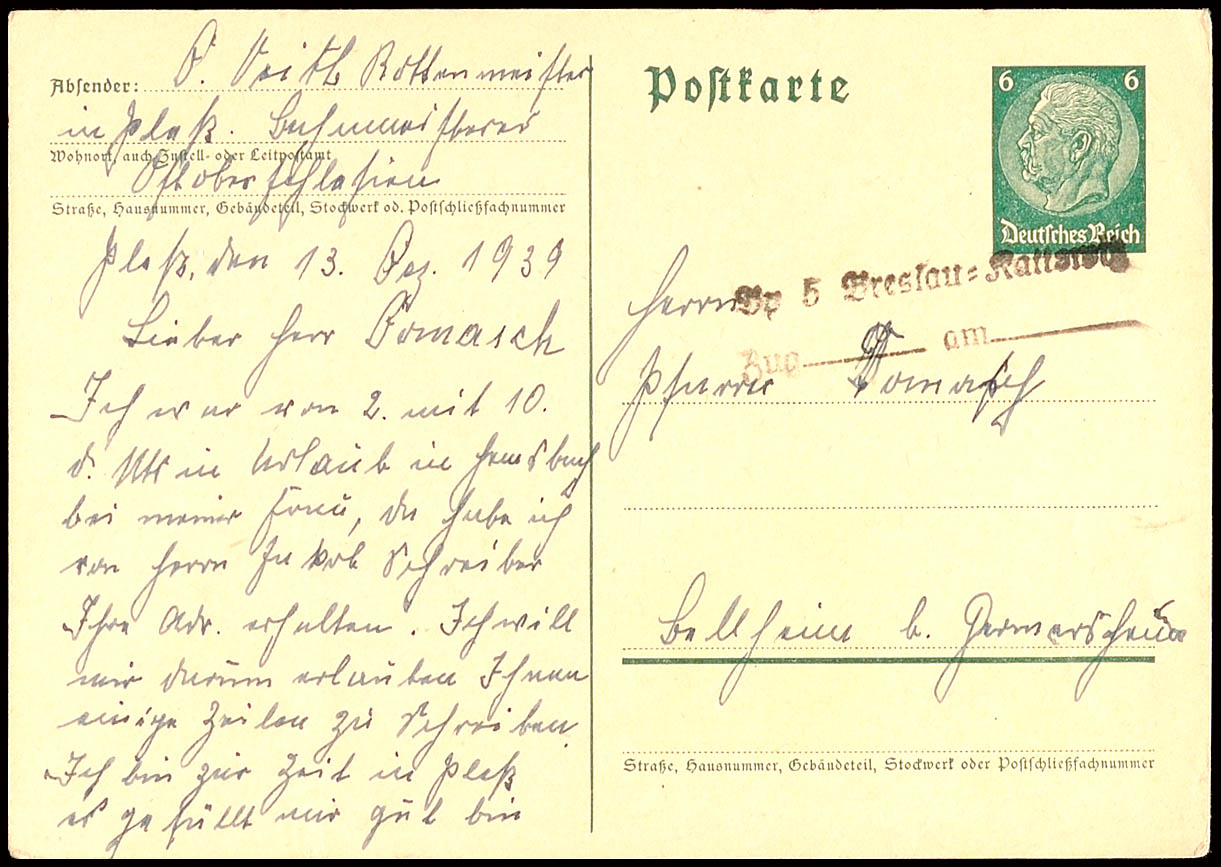 Absender: O. Veith Rottenmeister
in Pleß. Bahnmeisterei
Wohnort, auch Zustell- oder Leitpostamt
Ostoberschlesien
Straße, Hausnummer, Gebäudeteil, Stockwerk od. Postschließfachnummer
Pleß, den 13. Dez. 1939
Lieber Herr Domasch
Ich war von 2. mit 10.
d. Mts in Urlaub in Hemsbach
bei meiner Frau, da habe ich
von Herrn Jakob Schreiber
Ihre Adr. erhalten. Ich will
mir darum erlauben Ihnen
einige Zeilen zu schreiben
Ich bin zur Zeit in Pleß
es gefällt mir gut bin
Postkarte
6 6
Deutsches Reich
Bp 5 Breslau=Kattowitz
Zug am
Herrn
Pfarrer Domasch
Bellheim b. Germersheim
Straße, Hausnummer, Gebäudeteil, Stockwerk oder Postschließfachnummer